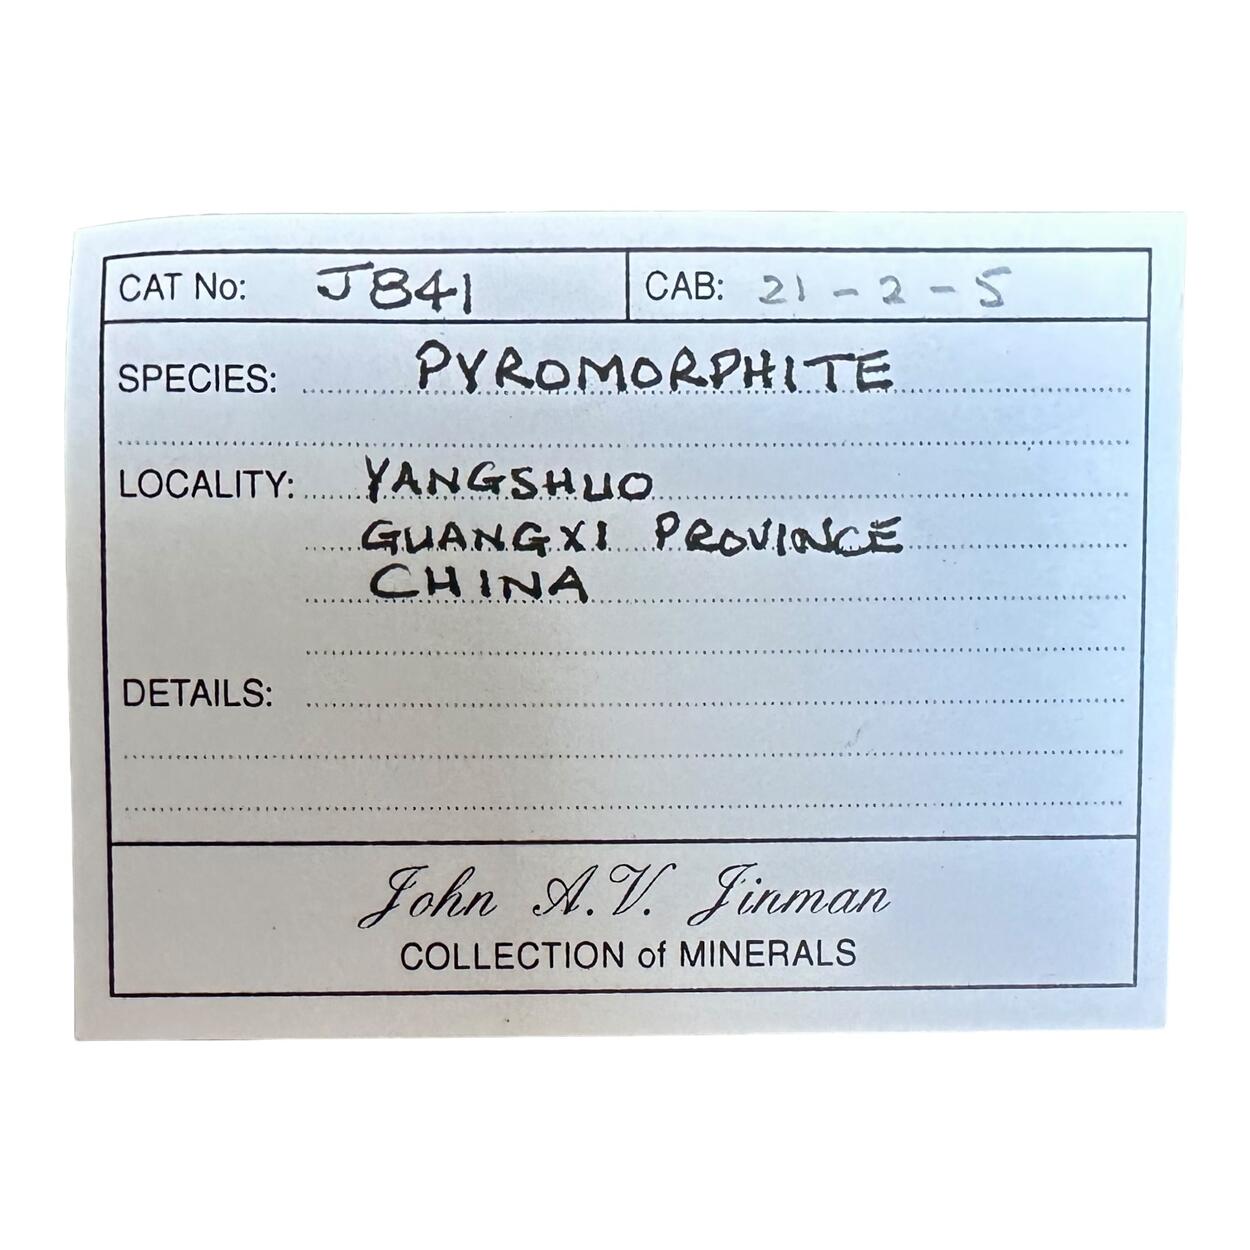 CAT No: J841 CAB: 21-2-5
SPECIES: PYROMORPHITE
LOCALITY: YANGSHUO
GUANGXI PROVINCE
CHINA
DETAILS:
John A.V. Jinman
COLLECTION of MINERALS